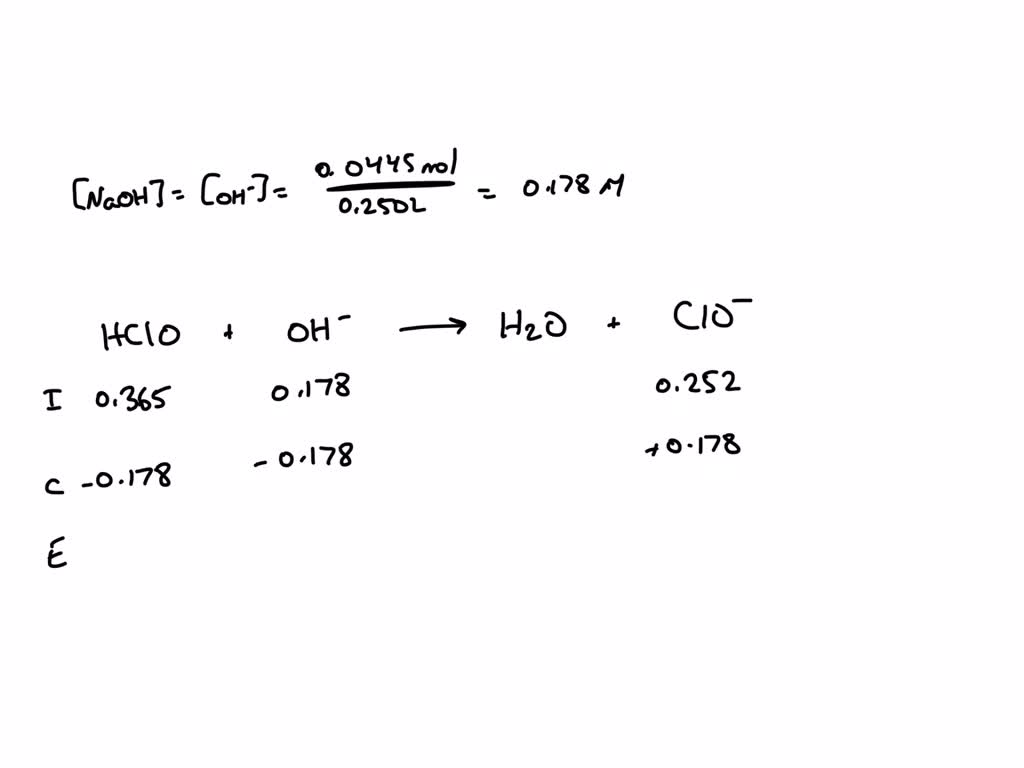 [NaOH] = [OH⁻] = 0.0445 mol / 0.250L = 0.178 M
HClO + OH⁻ → H₂O + ClO⁻
I 0.365 0.178 0.252
C -0.178 -0.178 +0.178
E